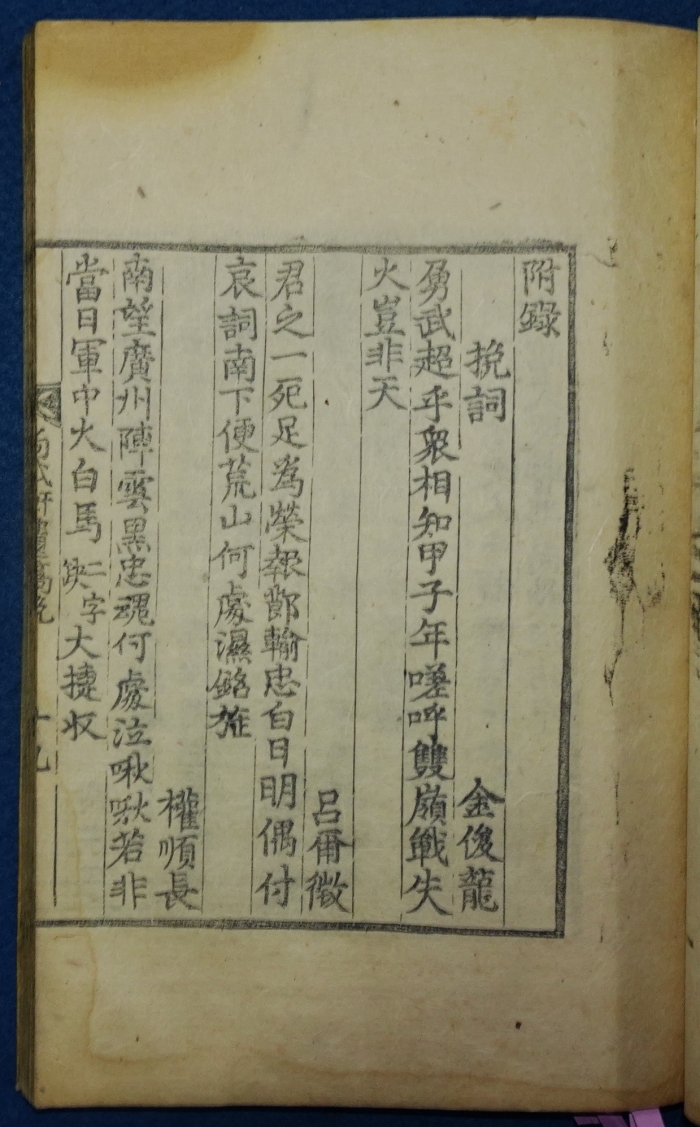 附錄
挽詞
金俊龍
勇武超乎衆相知甲子年嗟呼雙嶺戰失
火豈非天
呂爾徵
君之一死足爲榮報鄲輸忠白日明偶付
哀詞南下便荒山何處濕銘旌
權順長
南望廣州陣雲黑忠魂何處泣啾啾若非
當日軍中火白馬缺二字大捷収
十九